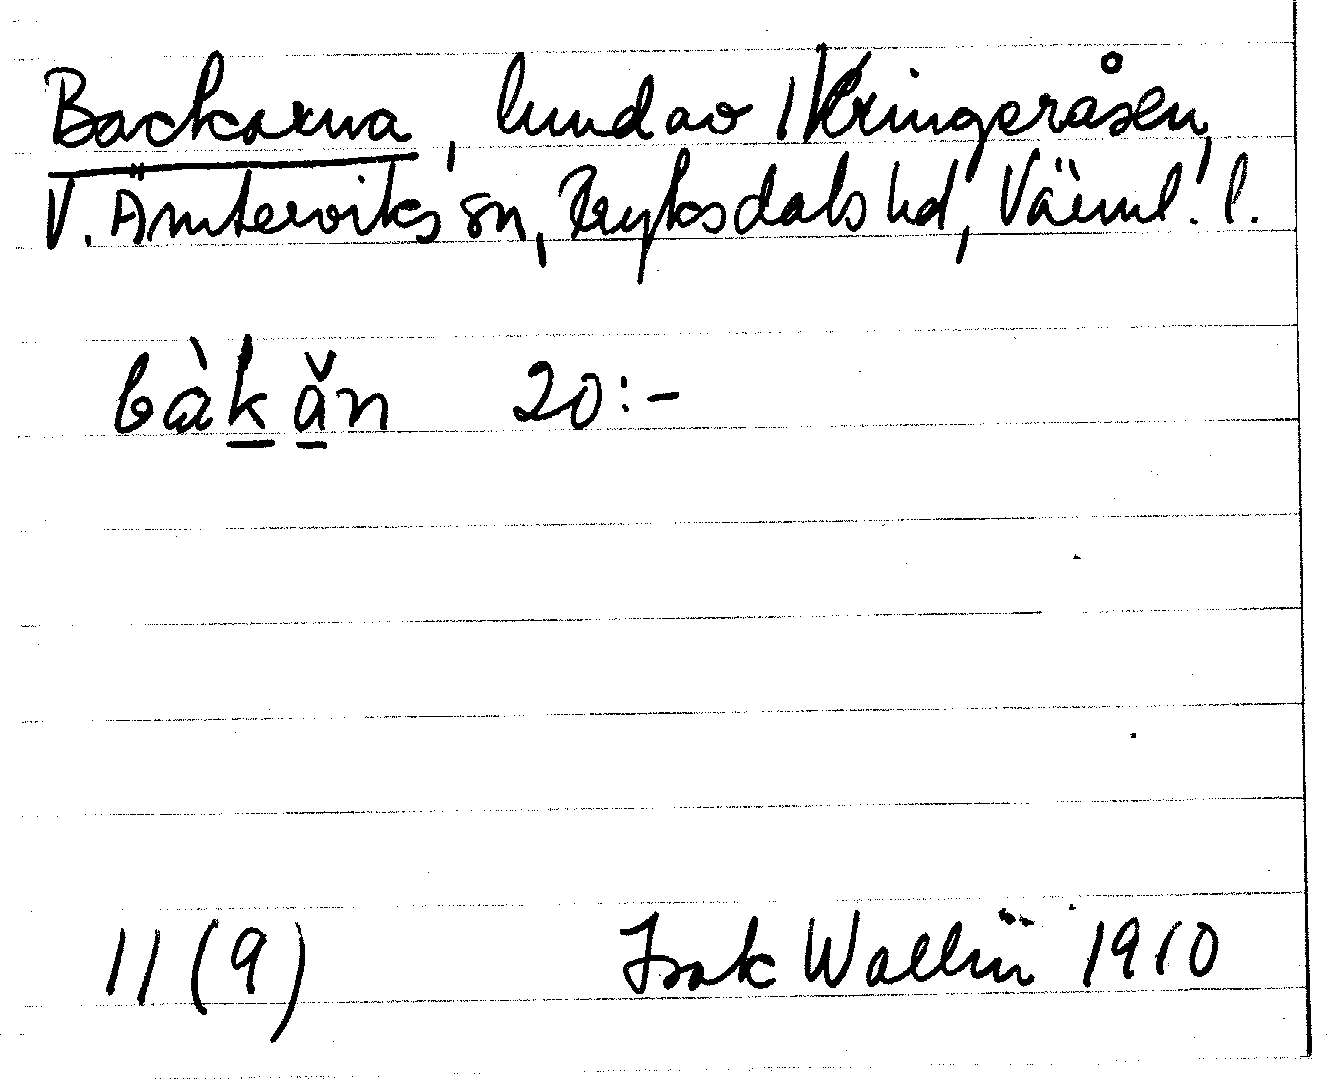 Backarna, lund av 1 Kringeråsen,
V. Ämterviks sn, Fryksdals hd, Värml. l.
bàkăn 20:-
11(9) Isak Wallin 1910